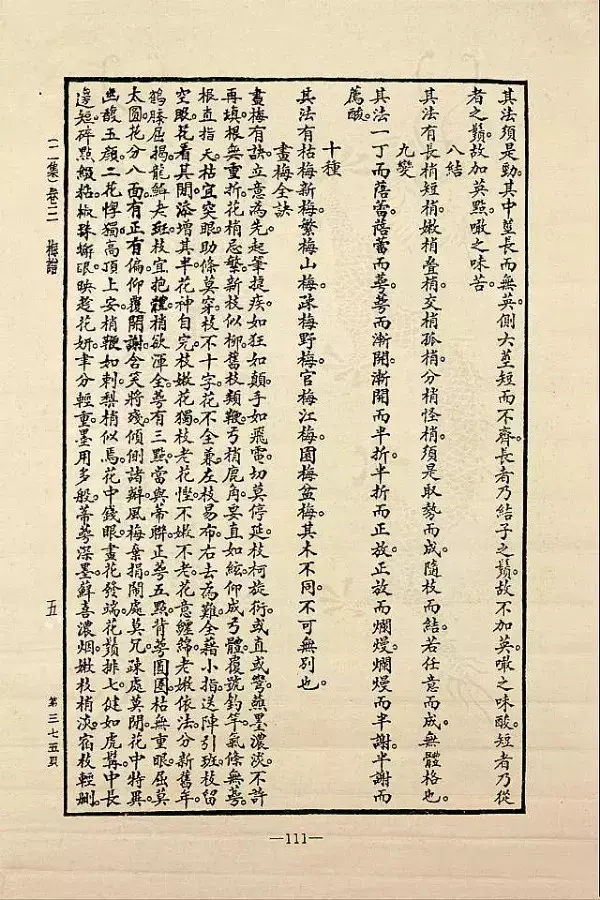 其法須是勁其中莖長而無英側六莖短而不齊長者乃結子之鬚故不加英噉之味酸短者乃從
者之鬚故加英點噉之味苦
八結
其法有長梢短梢嫩梢叠梢交梢孤梢分梢怪梢須是取勢而成隨枝而結若任意而成無體格也
九變
其法一丁而蓓蕾蓓蕾而萼萼而漸開漸開而半折半折而正放正放而爛熳爛熳而半謝半謝而
薦酸
十種
其法有枯梅新梅繁梅山梅疎梅野梅官梅江梅園梅盆梅其木不同不可無別也
畫梅全訣
畫梅有訣立意為先起筆捷疾如狂如顛手如飛電切莫停延枝柯旋衍或直或彎蘸墨濃淡不許
再填根無重折花梢忌繁新枝似柳舊枝類鞭弓梢鹿角要直如絃仰成弓體覆號釣竿氣條無萼
根直指天枯宜突眼助條莫穿枝不十字花不全兼左枝易布右去為難全藉小指送陣引班枝留
空眼花看其間添增其半花神自完枝嫩花獨枝老花慳不嫩不老花意纏綿老嫩依法分新舊年
鶴膝屈揭龍鱗老斑枝宜抱體梢欲渾全萼有三點當與蒂聯正萼五點背萼圓圓枯無重眼屈莫
太圓花分八面有正有偏仰覆開謝含笑將殘傾側諸瓣風梅棄捐鬧處莫冗疎處莫閒花中特異
幽馥五顏二花惸獨高頂上安梢鞭如刺梨梢似焉花中錢眼畫花發端花鬚排七健如虎鬚中長
邊短碎點綴粘椒珠蟹眼映趁花妍聿分輕重墨用多般蒂萼深墨蘚喜濃烟嫩枝梢淡宿枝輕刪
(二集)卷三 梅譜
五
第三七五頁
—111—